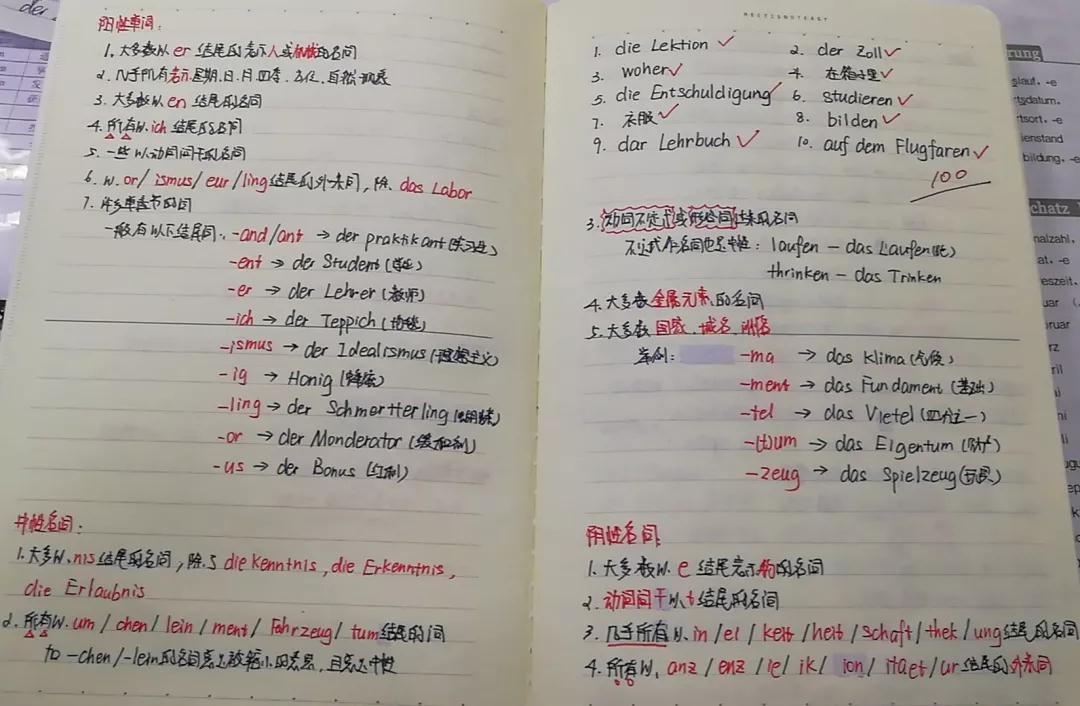 der
阳性单词:
1. 大多数以 er 结尾的表示人或机械的名词
2. 几乎所有表示星期、日、月、四季、方位、自然现象
3. 大多数以 en 结尾的名词
4. 所有以 ich 结尾的名词
5. 一些以动词词干的名词
6. 以 or/ ismus/ eur /ling 结尾的外来词, 除 das Labor
7. 许多单音节的词
一般有以下结尾词: -and/ant → der praktikant (实习生)
-ent → der Student (学生)
-er → der Lehrer (教师)
-ich → der Teppich (地毯)
-ismus → der Idealismus (理想主义)
-ig → Honig (蜂蜜)
-ling → der Schmertterling (蝴蝶)
-or → der Monderator (缓和剂)
-us → der Bonus (红利)
中性名词:
1. 大多以 nis 结尾的名词, 除了 die kenntnis, die Erkenntnis,
die Erlaubnis
2. 所有以 um / chen / lein / ment / Fahrzeug / tum 结尾的词
-chen/-lein 的名词表达缩小的意思, 且是中性
RECTISNOTEASY
1. die Lektion ✓ 2. der Zoll ✓
3. woher ✓ 4. 在箱子里 ✓
5. die Entschuldigung ✓ 6. studieren ✓
7. 衣服 ✓ 8. bilden ✓
9. dar Lehrbuch ✓ 10. auf dem Flugfaren ✓
100
3. 动词不定式或形容词过来的名词
不定式作名词也是中性: laufen – das Laufen (跑)
thrinken – das Trinken
4. 大多数金属元素的名词
5. 大多数国家、城名、洲名
举例: -ma → das Klima (气候)
-ment → das Fundament (基础)
-tel → das Vietel (四分之一)
-(t)um → das Eigentum (财产)
-zeug → das Spielzeug (玩具)
阴性名词
1. 大多数以 e 结尾表示物的名词
2. 动词词干以 t 结尾的名词
3. 几乎所有以 in / ei / keit / heit / schaft / thek / ung 结尾的名词
4. 所有以 anz / enz / ie / ik / ion / itaet / ur 结尾的外来词
rung
slauf, -e
rtsdatum,
rtsort, -e
ienstand
bildung, -e
chatz
nalzahl,
at, -e
eszeit,
uar
ruar
rz
ril